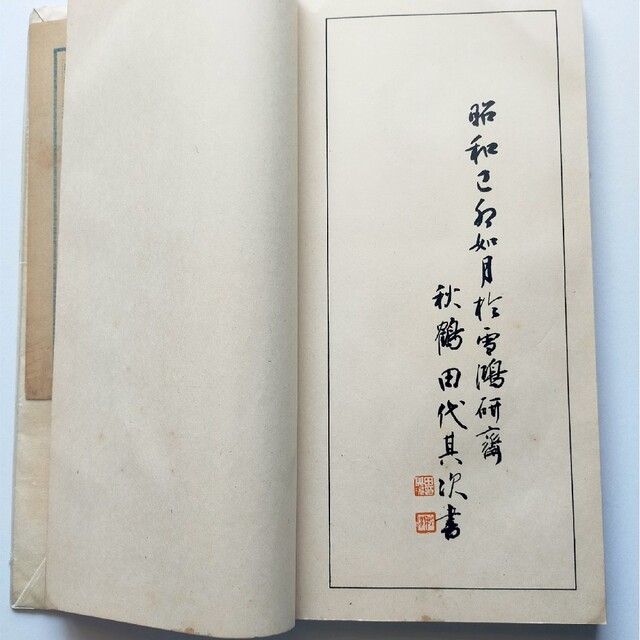 昭和己卯如月於雪鴻研齋
秋鶴田代其次書